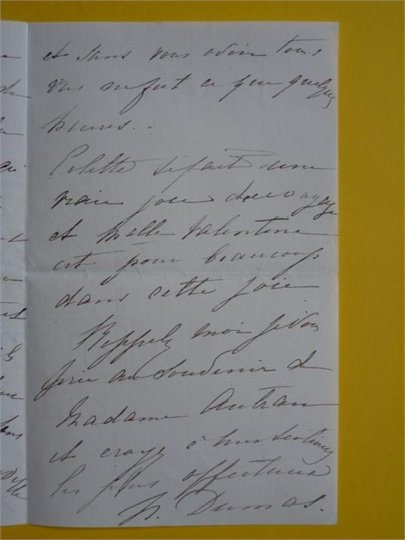 et sans vous avoir tous
vus ne fut ce que quelques
heures..
Colette se fait une
vraie joie de ce voyage
et Melle Valentine
est pour beaucoup
dans cette joie
Rappelez moi je vous
prie au Souvenir de
Madame Autran
et croyez à tous sentiments
les plus affectueux
Dumas.